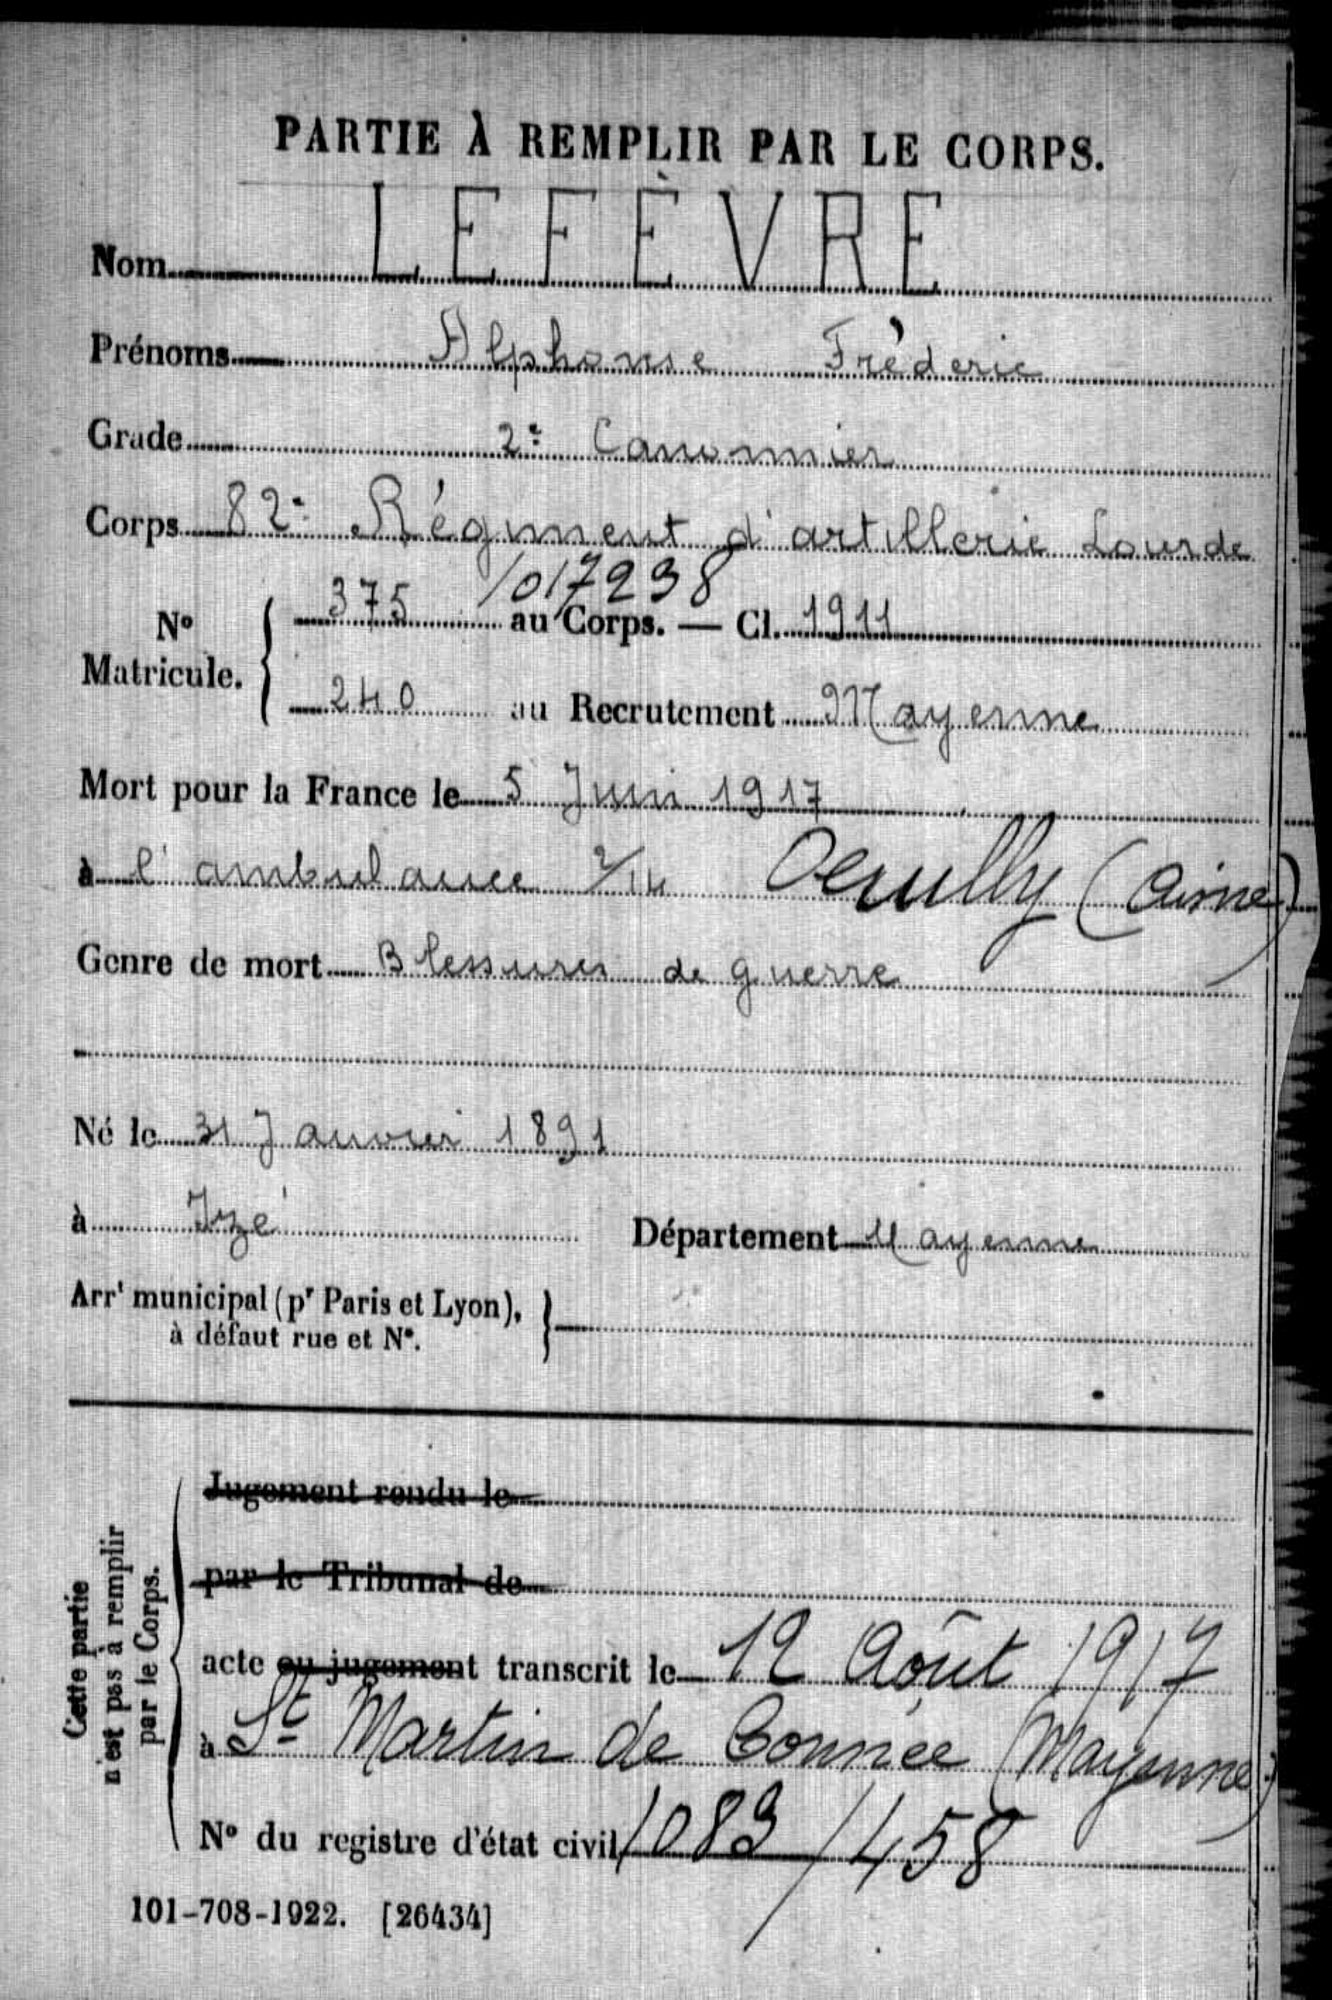 PARTIE À REMPLIR PAR LE CORPS.
Nom LEFÈVRE
Prénoms Alphonse Fréderic
Grade 2e Canonnier
Corps 82e Régiment d'artillerie Lourde
N° Matricule. { 375 /017238 au Corps. — Cl. 1911
240 au Recrutement Mayenne
Mort pour la France le 5 Juin 1917
à l'ambulance 2/14 Oeuilly (Aisne)
Genre de mort Blessures de guerre
Né le 31 Janvier 1891
à Izé Département Mayenne
Arrt municipal (pr Paris et Lyon),
à défaut rue et N°.
Cette partie
n'est pas à remplir
par le Corps.
Jugement rendu le
par le Tribunal de
acte ou jugement transcrit le 12 Août 1917
à St Martin de Connée (Mayenne)
N° du registre d'état civil 1083/458
101-708-1922. [26434]